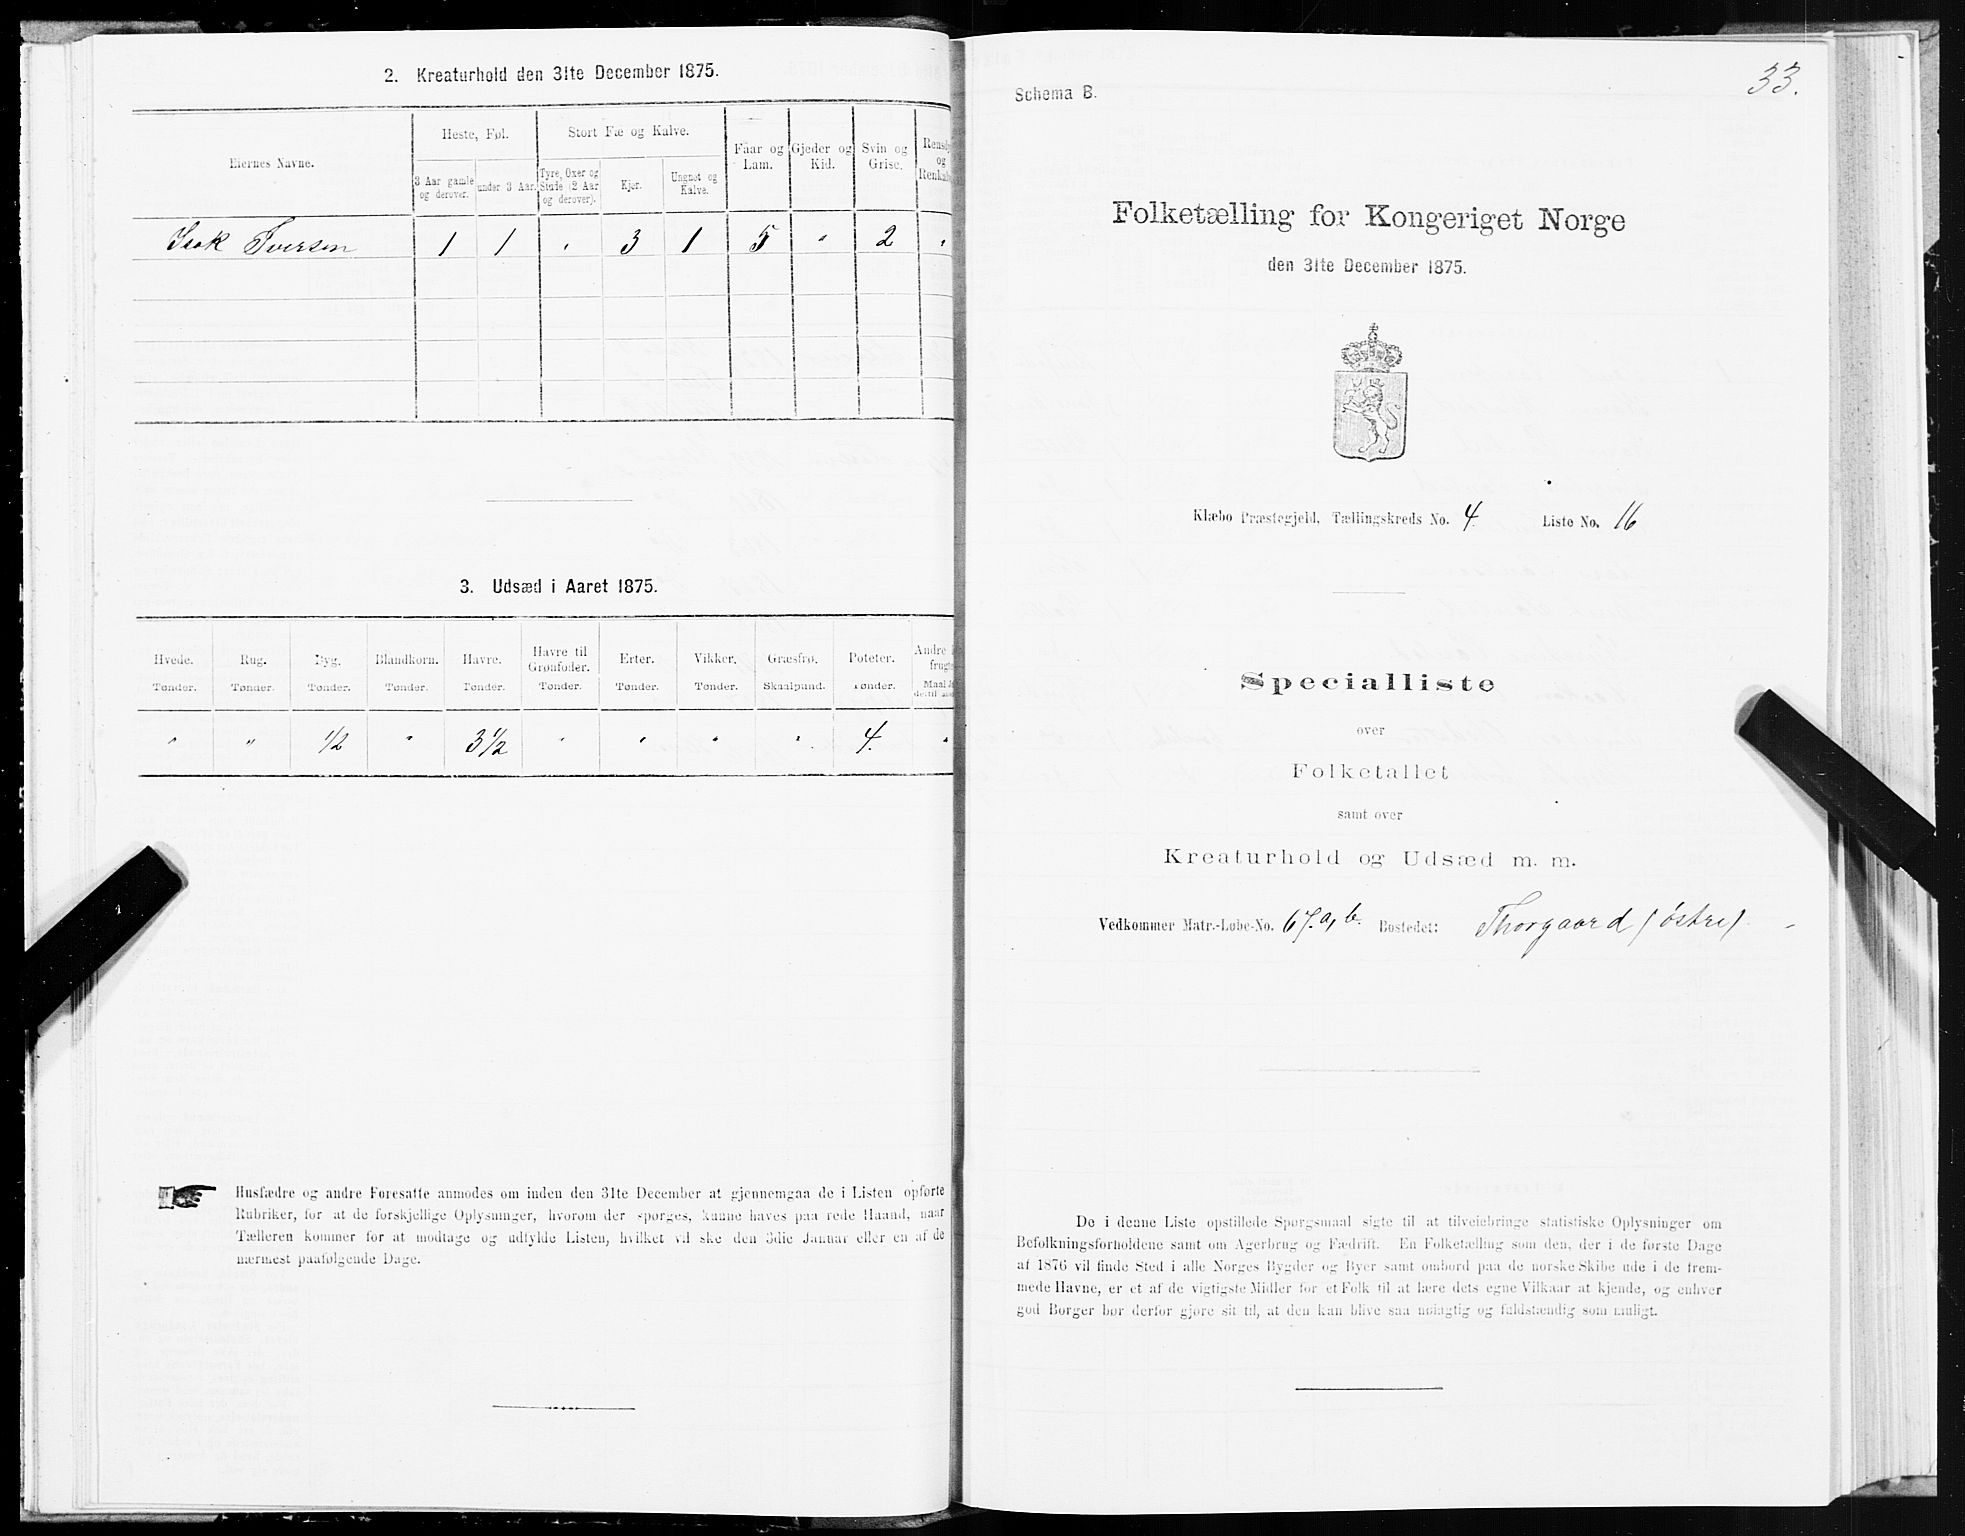 2. Kreaturhold den 31te December 1875.
Eiernes Navne.
Heste, Føl.
Stort Fæ og Kalve.
Faar og Lam.
Gjeder og Kid.
Svin og Grise.
og
3 Aar gamle og derover.
under 3 Aar.
Tyre, Oxer og Stude (2 Aar og derover).
Kjør.
Ungnøt og Kalve.
Isak Iversen 1 1 " 3 1 5 " 2 "
3. Udsæd i Aaret 1875.
Hvede. Rug. Byg. Blandkorn. Havre. Havre til Grønfoder. Erter. Vikker. Græsfrø. Poteter. Andre
Tønder. Tønder. Tønder. Tønder. Tønder. Tønder. Tønder. Tønder. Skaalpund. Tønder. Maal
" " 1/2 " 3 1/2 " " " " 4. "
Husfædre og andre Foresatte anmodes om inden den 31te December at gjennemgaa de i Listen opførte
Rubriker, for at de forskjellige Oplysninger, hvorom der spørges, kunne haves paa rede Haand, naar
Tælleren kommer for at modtage og udfylde Listen, hvilket vil ske den 3die Januar eller en af de
nærmest paafølgende Dage.
33.
Schema B.
Folketælling for Kongeriget Norge
den 31te December 1875.
Klæbo Præstegjeld, Tællingskreds No. 4. Liste No. 16
Specialliste
over
Folketallet
samt over
Kreaturhold og Udsæd m. m.
Vedkommer Matr.-Løbe-No. 67.a,b. Bostedet: Thorgaard (østre)
De i denne Liste opstillede Spørgsmaal sigte til at tilveiebringe statistiske Oplysninger om
Befolkningsforholdene samt om Agerbrug og Fædrift. En Folketælling som den, der i de første Dage
af 1876 vil finde Sted i alle Norges Bygder og Byer samt ombord paa de norske Skibe ude i de frem-
mede Havne, er et af de vigtigste Midler for et Folk til at lære dets egne Vilkaar at kjende, og enhver
god Borger bør derfor gjøre sit til, at den kan blive saa nøiagtig og fuldstændig som muligt.